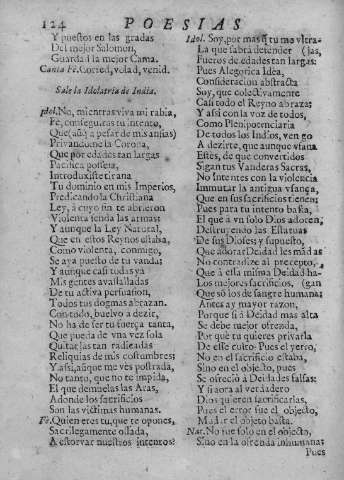 124 POESIAS
Y puestos en las gradas
Del mejor Salomon,
Guarda i la mejor Cama.
Canta Fè. Corred, volad, venid.
Sale la Idolatria de India.
Idol. No, mientras viva mi rabia,
Fe, conseguiràs tu intento,
Que (aunq̃ a pesar de mis ansias)
Privandome la Corona,
Que por edades tan largas
Pacifica posseìa,
Introduxiste tirana
Tu dominio en mis Imperios,
Predicando la Christiana
Ley, à cuyo fin te abrieron
Violenta senda las armas:
Y aunque la Ley Natural,
Que en estos Reynos estaba,
Como violenta, conmigo,
Se aya puesto de tu vanda:
Y aunque casi todas ya
Mis gentes avassalladas
De tu activa persuasion,
Todos tus dogmas abrazan.
Con todo, buelvo a dezir,
No ha de ser tu fuerça tanta,
Que pueda de vna vez sola
Quitar las tan radicadas
Reliquias de mis costumbres:
Y assi, aunque me vès postrada,
No tanto, que no te impida,
El que demuelas las Aras,
Adonde los sacrificios
Son las victimas humanas.
Fe. Quien eres tu, que te opones,
Sacrilegamente ossada,
A estorvar nuestros intentos?
Idol. Soy, por mas q̃ tu me vltra-
La que sabrà defender (jas,
Fueros de edades tan largas:
Pues Alegorica Idèa,
Consideracion abstracta
Soy, que colectivamente
Casi todo el Reyno abraza:
Y assi con la voz de todos,
Como Plenipotenciaria
De todos los Indios, vengo
A dezirte, que aunque vfana
Estès, de que convertidos
Sigan tus Vanderas Sacras,
No intentes con la violencia
Immutar la antigua vsança,
Que en sus sacrificios tienen:
Pues para tu intento basta,
El que à vn solo Dios adoren,
Destruyendo las Estatuas
De sus Dioses: y supuesto,
Que adorar Deidades màdas
No contradize al precepto,
Que à essa misma Deidad ha-
Los mejores sacrificios, (gan
Que sòlos de sangre humana:
Antes ay mayor razon,
Porque si à Deidad mas alta
Se debe mejor ofrenda,
Por què tu quieres privarla
De esse culto? Pues el yerro,
No en el sacrificio estaba,
Sino en el objecto, pues
Se ofreciò a Deidades falsas:
Y si aora al verdadero
Dios quieren sacrificarlas,
Pues el error fue el objecto,
Mudar el objeto basta.
Nat. No fue solo en el objecto,
Sino en la ofrenda inhumana:
Pues